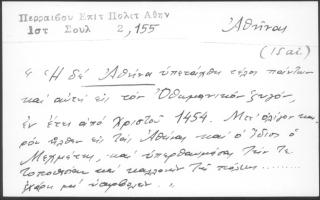 Περραιδου Επιτ Πολιτ Αθην
1στ Σουλ 2,155
Ἀθῆναι
(ISaï.)
"Ἡ δέ Ἀθήνα ὑπετάχθη τέλος πάντων
καί αὐτή εἰς τόν Ὀθωμανικόν ζυγόν,
ἐν ἔτει ἀπό Χριστοῦ 1454. Μετ' ὀλίγον και-
ρόν ἦλθεν εἰς τάς Ἀθήνας καί ὁ ἴδιος ὁ
Μεχμέτης, καί ὑπερθαυμάσας τήν τε
τοποθεσίαν καί καλλονήν τῆς πόλεως ........